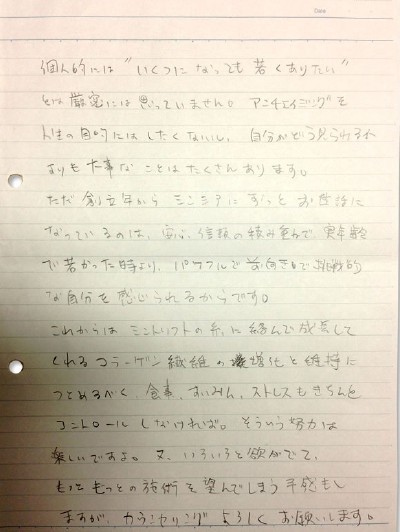 Date
個人的には"いくつになっても若くありたい"
とは厳密には思っていません。アンチエイジングを
人生の目的にはしたくないし、自分がどう見られるか
よりも大事なことはたくさんあります。
ただ創立年からミンミアにずっとお世話に
なっているのは、安心、信頼の積み重ねで、実年齢
で若かった時より、パワフルで前向きで挑戦的
な自分を感じられるからです。
これからはミントリフトの糸に絡んで成長して
くれるコラーゲン繊維の増化と維持に
つとめるべく、食事、すいみん、ストレスもきちんと
コントロールしなければ。そういう努力は
楽しいですよ。又、いろいろと欲がでて、
もっともっとの施術を望んでしまう予感もし
ますが、カウンセリングよろしくお願いします。